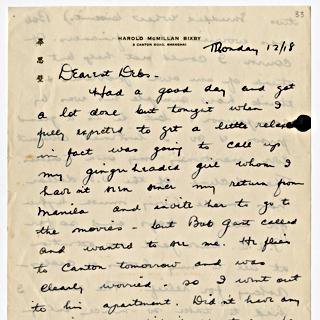 33
HAROLD McMILLAN BIXBY
3 CANTON ROAD, SHANGHAI
Monday 12/18
Dearest Debs -
Had a good day and got
a lot done but tonight when I
fully expected to get a little relaxe
in fact was going to call up
my ginger headed girl whom I
haven't seen since my return from
Manila and invite her to go to
the movies - but Bob Gast called
and wanted to see me. He flies
to Canton tomorrow and was
clearly worried - so I went out
to his apartment. Didn't have any